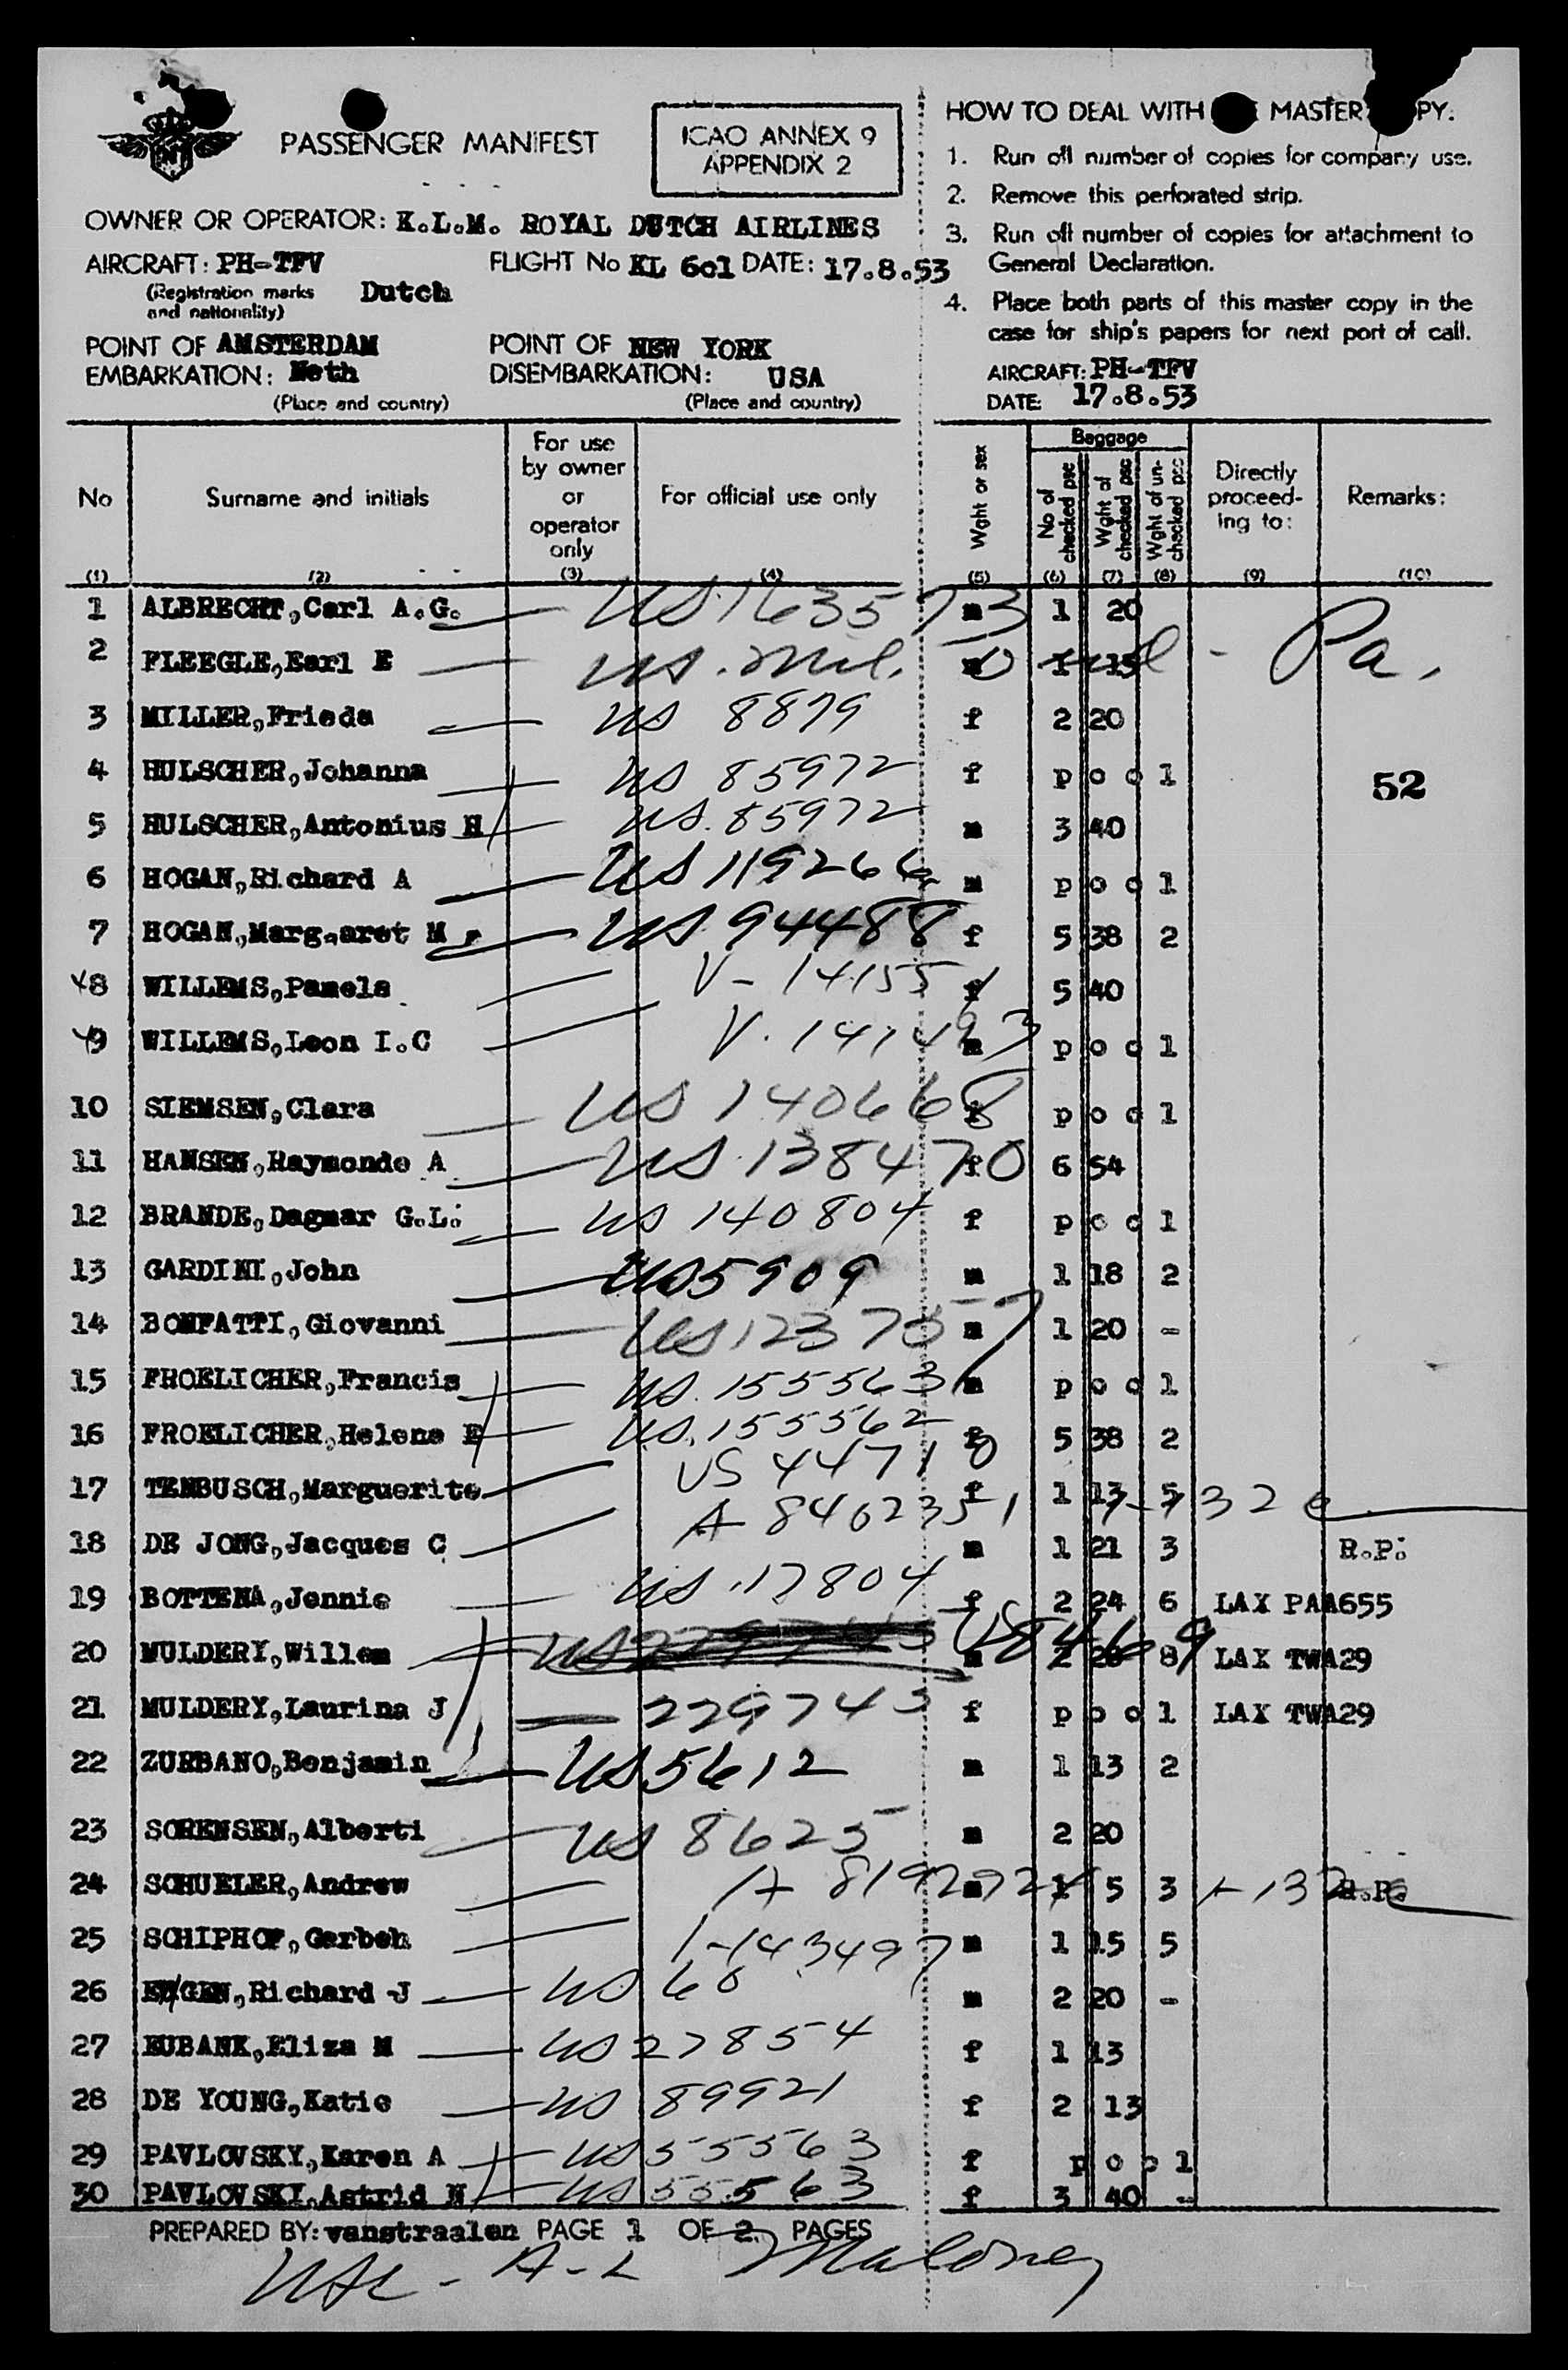 PASSENGER MANIFEST
ICAO ANNEX 9
APPENDIX 2
OWNER OR OPERATOR: K.L.M. ROYAL DUTCH AIRLINES
AIRCRAFT: PH-TFV FLIGHT No KL 601 DATE: 17.8.53
(Registration marks and nationality) Dutch
POINT OF EMBARKATION: AMSTERDAM Neth
(Place and country)
POINT OF DISEMBARKATION: NEW YORK USA
(Place and country)
HOW TO DEAL WITH MASTER
1. Run off number of copies for company use.
2. Remove this perforated strip.
3. Run off number of copies for attachment to
General Declaration.
4. Place both parts of this master copy in the
case for ship's papers for next port of call.
AIRCRAFT: PH-TFV
DATE: 17.8.53
No Surname and initials For use by owner or operator only For official use only Wght or sex Baggage No of checked psc Wght of checked psc Wght of un-checked psc Directly proceed-ing to: Remarks:
(1) (2) (3) (4) (5) (6) (7) (8) (9) (10)
1 ALBRECHT,Carl A.G. US 1635 73 m 1 20
2 FLEEGLE,Earl E US. Mil. 1 15 - Pa.
3 MILLER,Frieda US 8879 f 2 20
4 HULSCHER,Johanna US 85972 f p o o l
52
5 HULSCHER,Antonius H US. 85972 m 3 40
6 HOGAN,Richard A US 119266 m p o o l
7 HOGAN,Marg.aret M US 94488 f 5 38 2
8 WILLEMS,Pamela V-14155 f 5 40
9 WILLEMS,Leon I.C V. 147493 m p o o l
10 SIEMSEN,Clara US 140668 f p o o l
11 HANSEN,Raymonde A US 138470 f 6 54
12 BRANDE,Dagmar G.L. US 140804 f p o o l
13 GARDINI,John US 5909 m 1 18 2
14 BONFATTI,Giovanni US 12375 7 m 1 20 -
15 FROELICHER,Francis US. 155563 m p o o l
16 FROELICHER,Helene E US. 155562 f 5 38 2
17 TENBUSCH,Marguerite US 44710 f 1 13 5
18 DE JONG,Jacques C A 8462351 m 1 21 3 R.P.
19 BOTTEMA,Jennie US. 17804 f 2 24 6 LAX PAA655
20 MULDERY,Willem m 2 8 LAX TWA29
21 MULDERY,Laurina J 229745 f p o o l LAX TWA29
22 ZURBANO,Benjamin US 5612 m 1 13 2
23 SORENSEN,Alberti US 8625 m 2 20
24 SCHUELER,Andrew A 8192924 m 1 5 3 R.P.
25 SCHIPHOF,Gerbeh 1-143497 m 1 15 5
26 Richard J US 60 m 2 20 -
27 EUBANK,Eliza M US 27854 f 1 13
28 DE YOUNG,Katie US 89921 f 2 13
29 PAVLOVSKY,Karen A US 55563 f p o o l
30 PAVLOVSKY,Astrid N US 55563 f 3 40 -
PREPARED BY: vanstraalen PAGE 1 OF 2 PAGES
Maloney